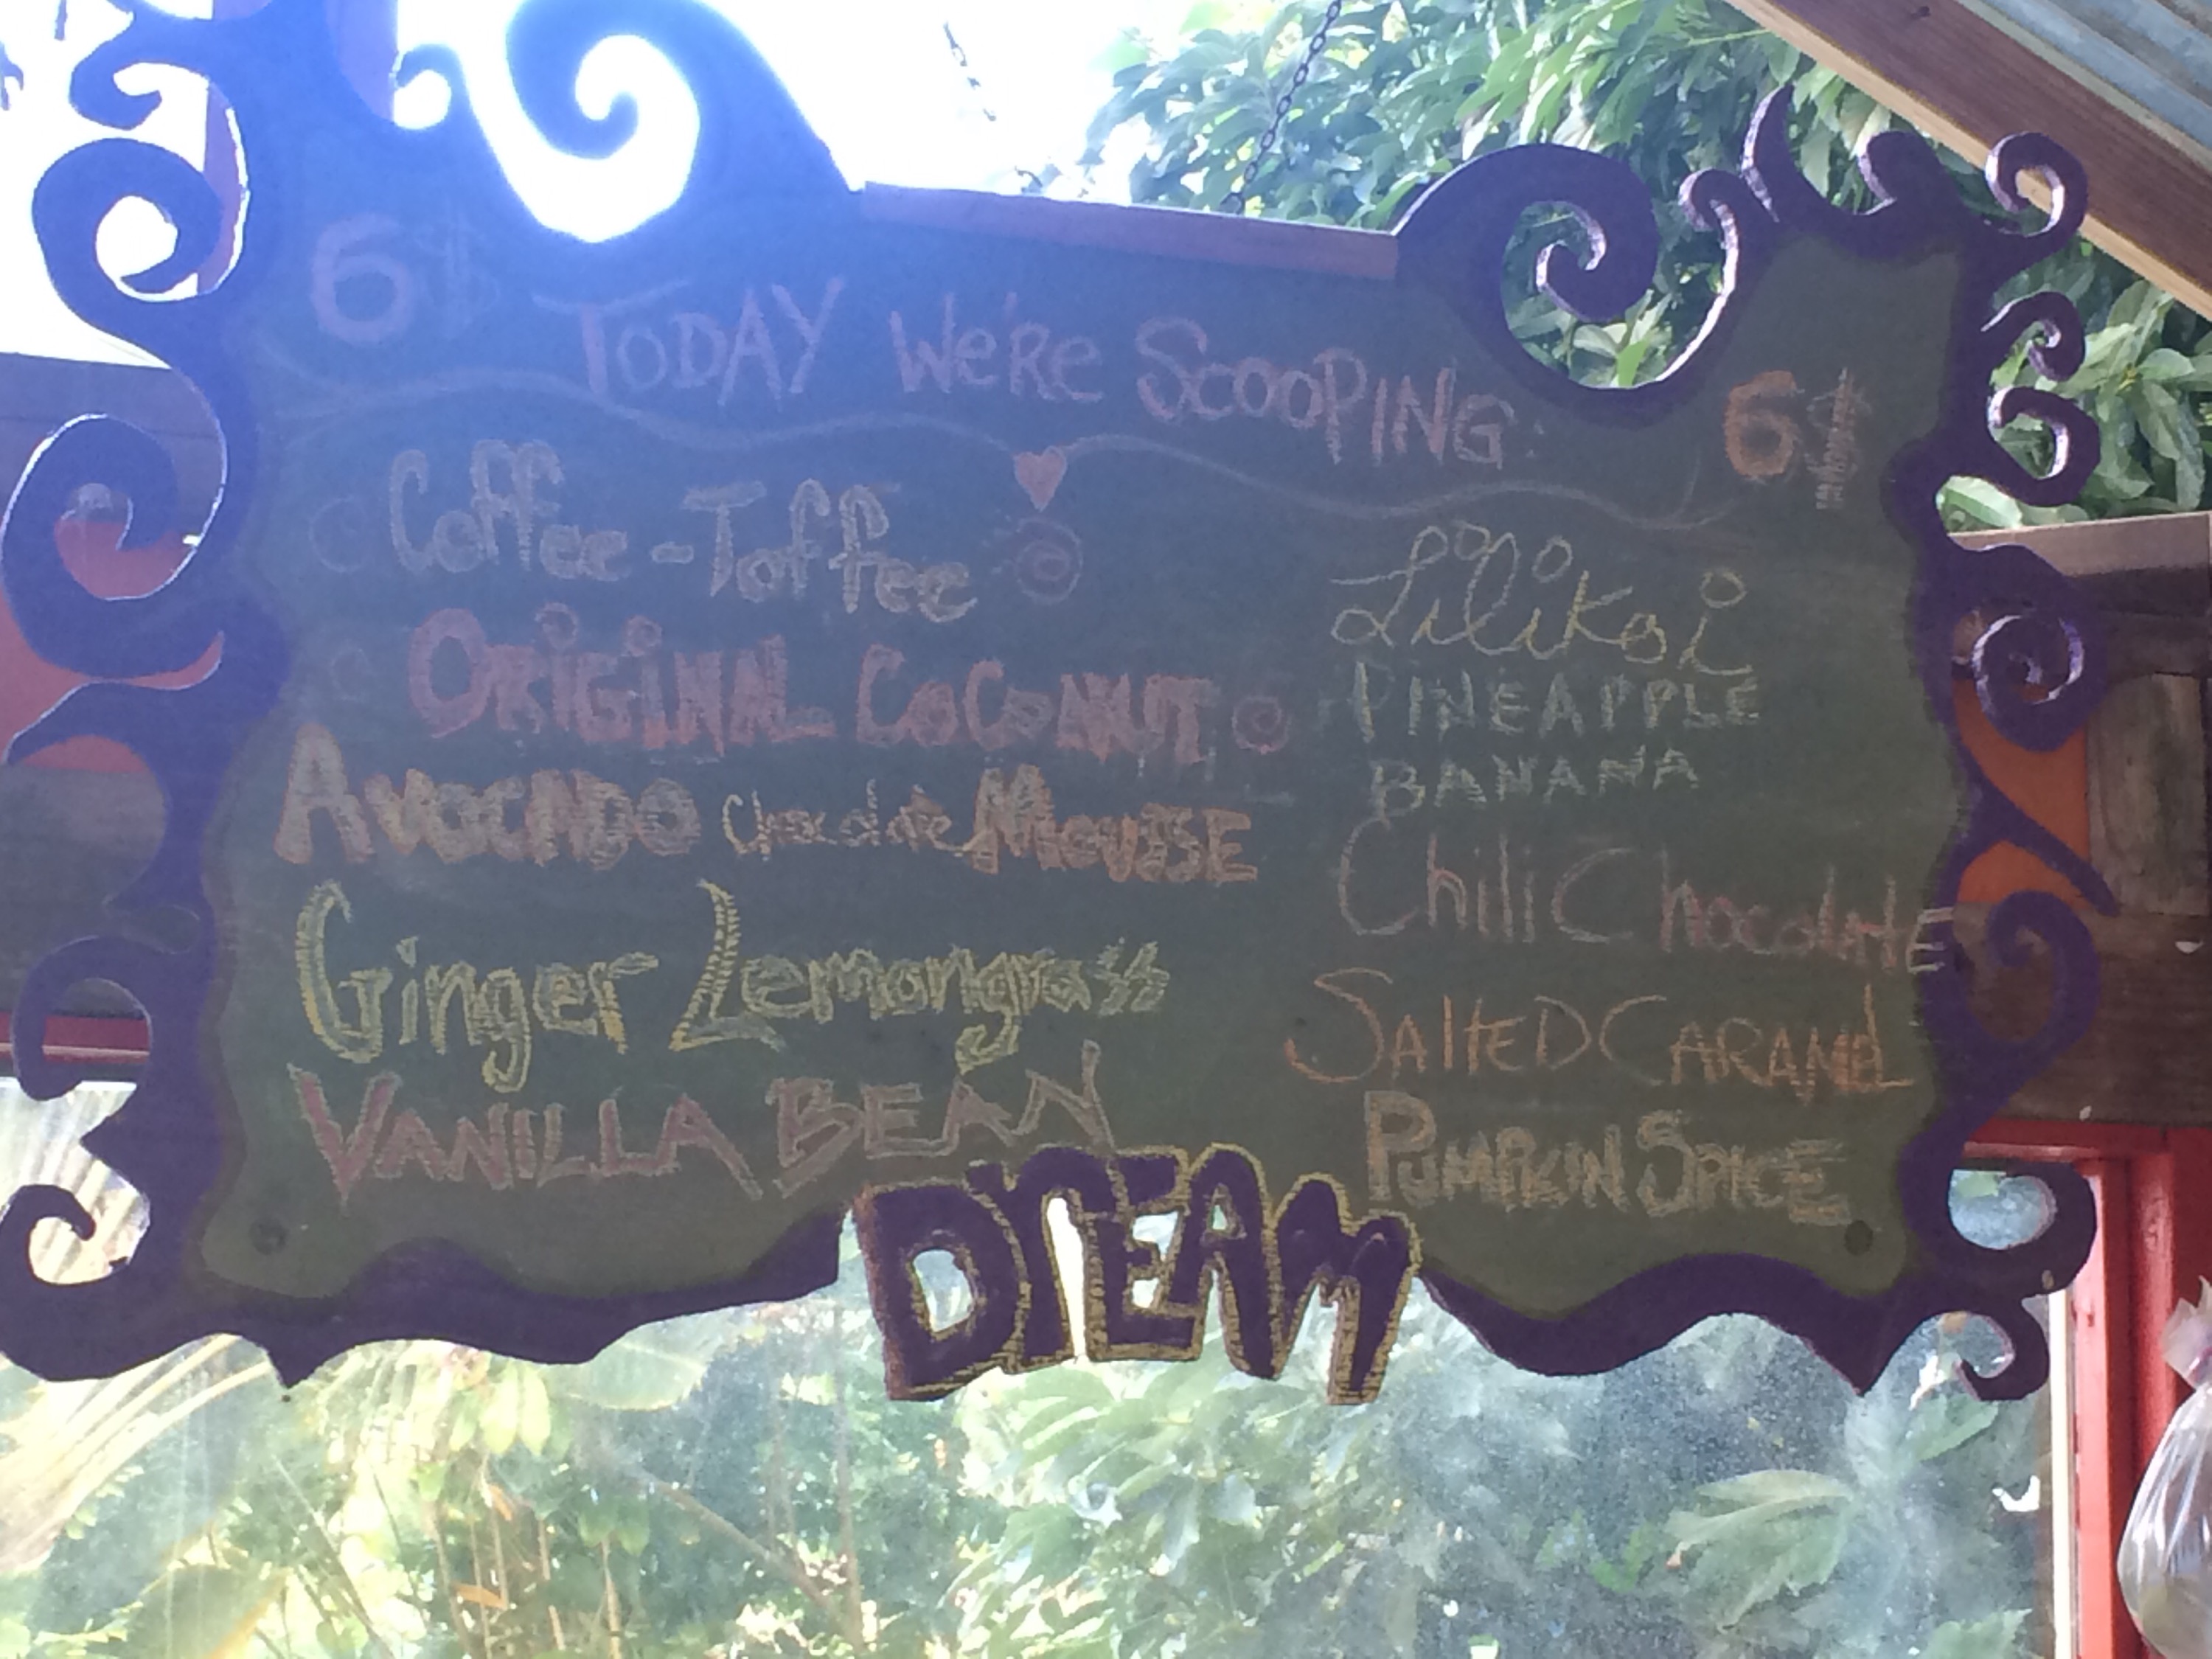 6$
TODAY WE'RE SCOOPING:
6$
Coffee-Toffee
ORiGiNAL COCONUT
AVOCADO chocolate MOUSSE
Ginger Lemongrass
VANILLA BEAN
Lilikoi
PINEAPPLE
BANANA
Chili Chocolate
SAltED CARAMEL
PUMPKIN SPICE
DREAM